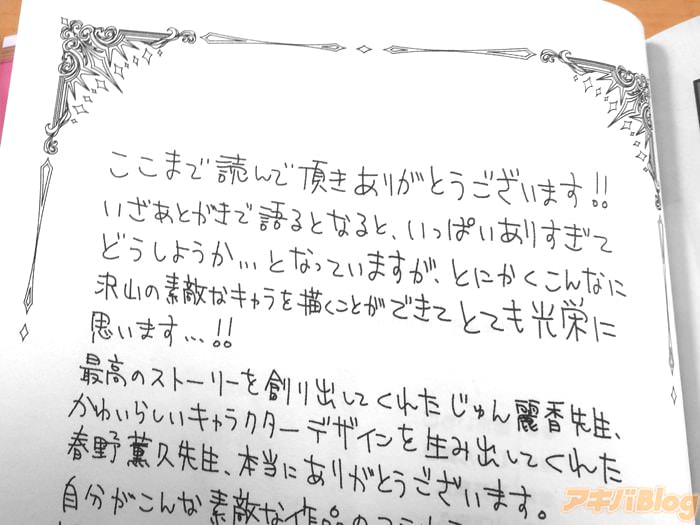 ここまで読んで頂きありがとうございます!!
いざあとがきで語るとなると、いっぱいありすぎて
どうしようか...となっていますが、とにかくこんなに
沢山の素敵なキャラを描くことができてとても光栄に
思います...!!
最高のストーリーを創り出してくれたじゅん麗香先生、
かわいらしいキャラクターデザインを生み出してくれた
春野薫久先生、本当にありがとうございます。
自分がこんな素敵な作品の
アキバBlog